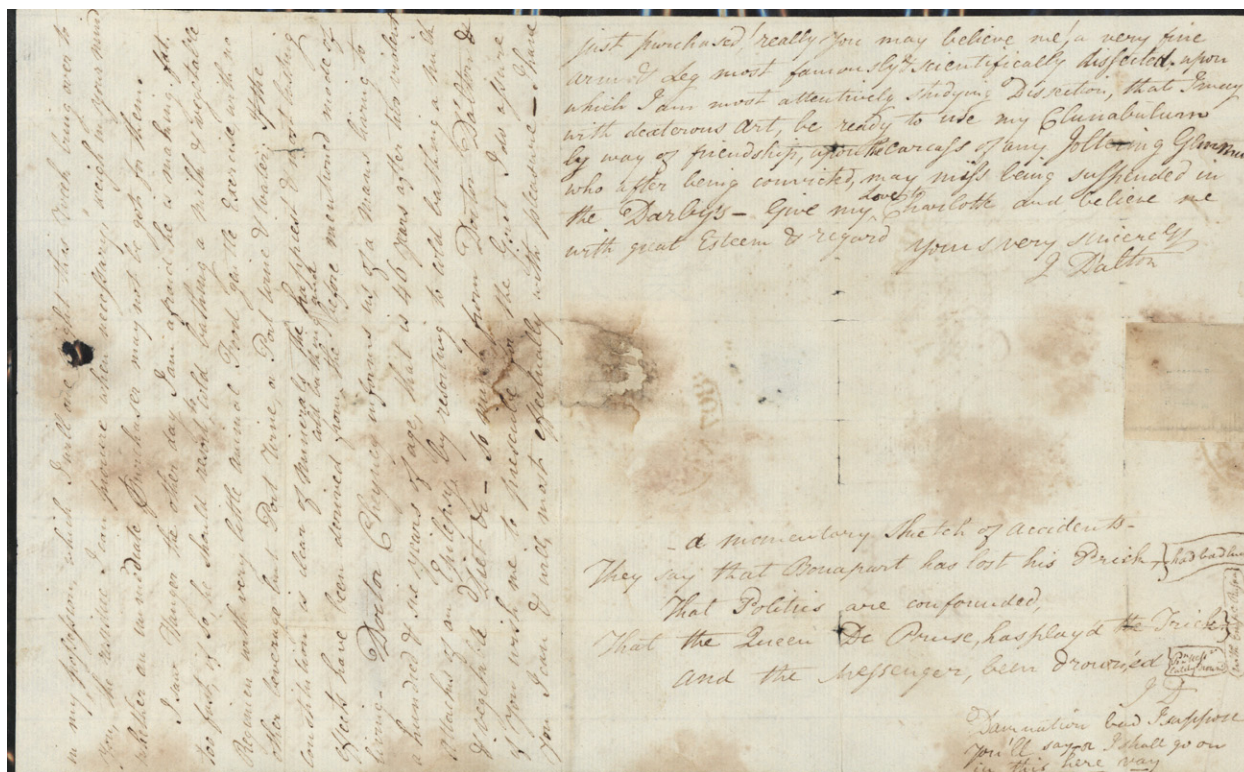 in my possession which I will one night this Week bring over to
you, the residue I can procure when necessary, weigh in your mind
whether an immediate Purchaser may not be got for them.
I saw Unger the other day, I am afraid he is making fat,
too fast, if so, he should resort to cold bathing a milk & vegetable
Regimen with very little annimal Food, gentle Exercise, with no
other beverage but Port Wine, or Port wine & water, if the
constitution is clear of Minerals, the happiest & most lasting
cold bathing and
effects have been derived from the before mentioned mode of
living - Doctor Cheyne informs us of a Mans living to
a hundred & six years of age, that is 46 years after the violent
Attacks of an Epilepsy, by resorting to cold bathing a milk
& vegetable Diet &c - So much from Doctor Dalton &
if you wish me to prescribe for the Gout I do assure
you I can & will, most effectually with pleasure - I have
just purchased (really you may believe me) a very fine
arm & Leg most famously & scientifically dissected, upon
which I am most attentively studying Dissection, that I may
with dexterous Art, be ready to use my Clunabulum
by way of friendship, upon the carcass of any Joltering
who after being convicted, may miss being suspended in
the Darbys - Give my love to Charlotte and believe me
with great Esteem & regard yours very sincerely
J Dalton
- a momentary Sketch of Accidents -
They say that Bonapart has lost his Prick, had bad luck
That Politics are confounded,
That the Queen De Pruse, has play'd the Trick
and the Messenger, been Drowned
J D
Damnation bad I suppose
You'll say or I shall go on
in this here way